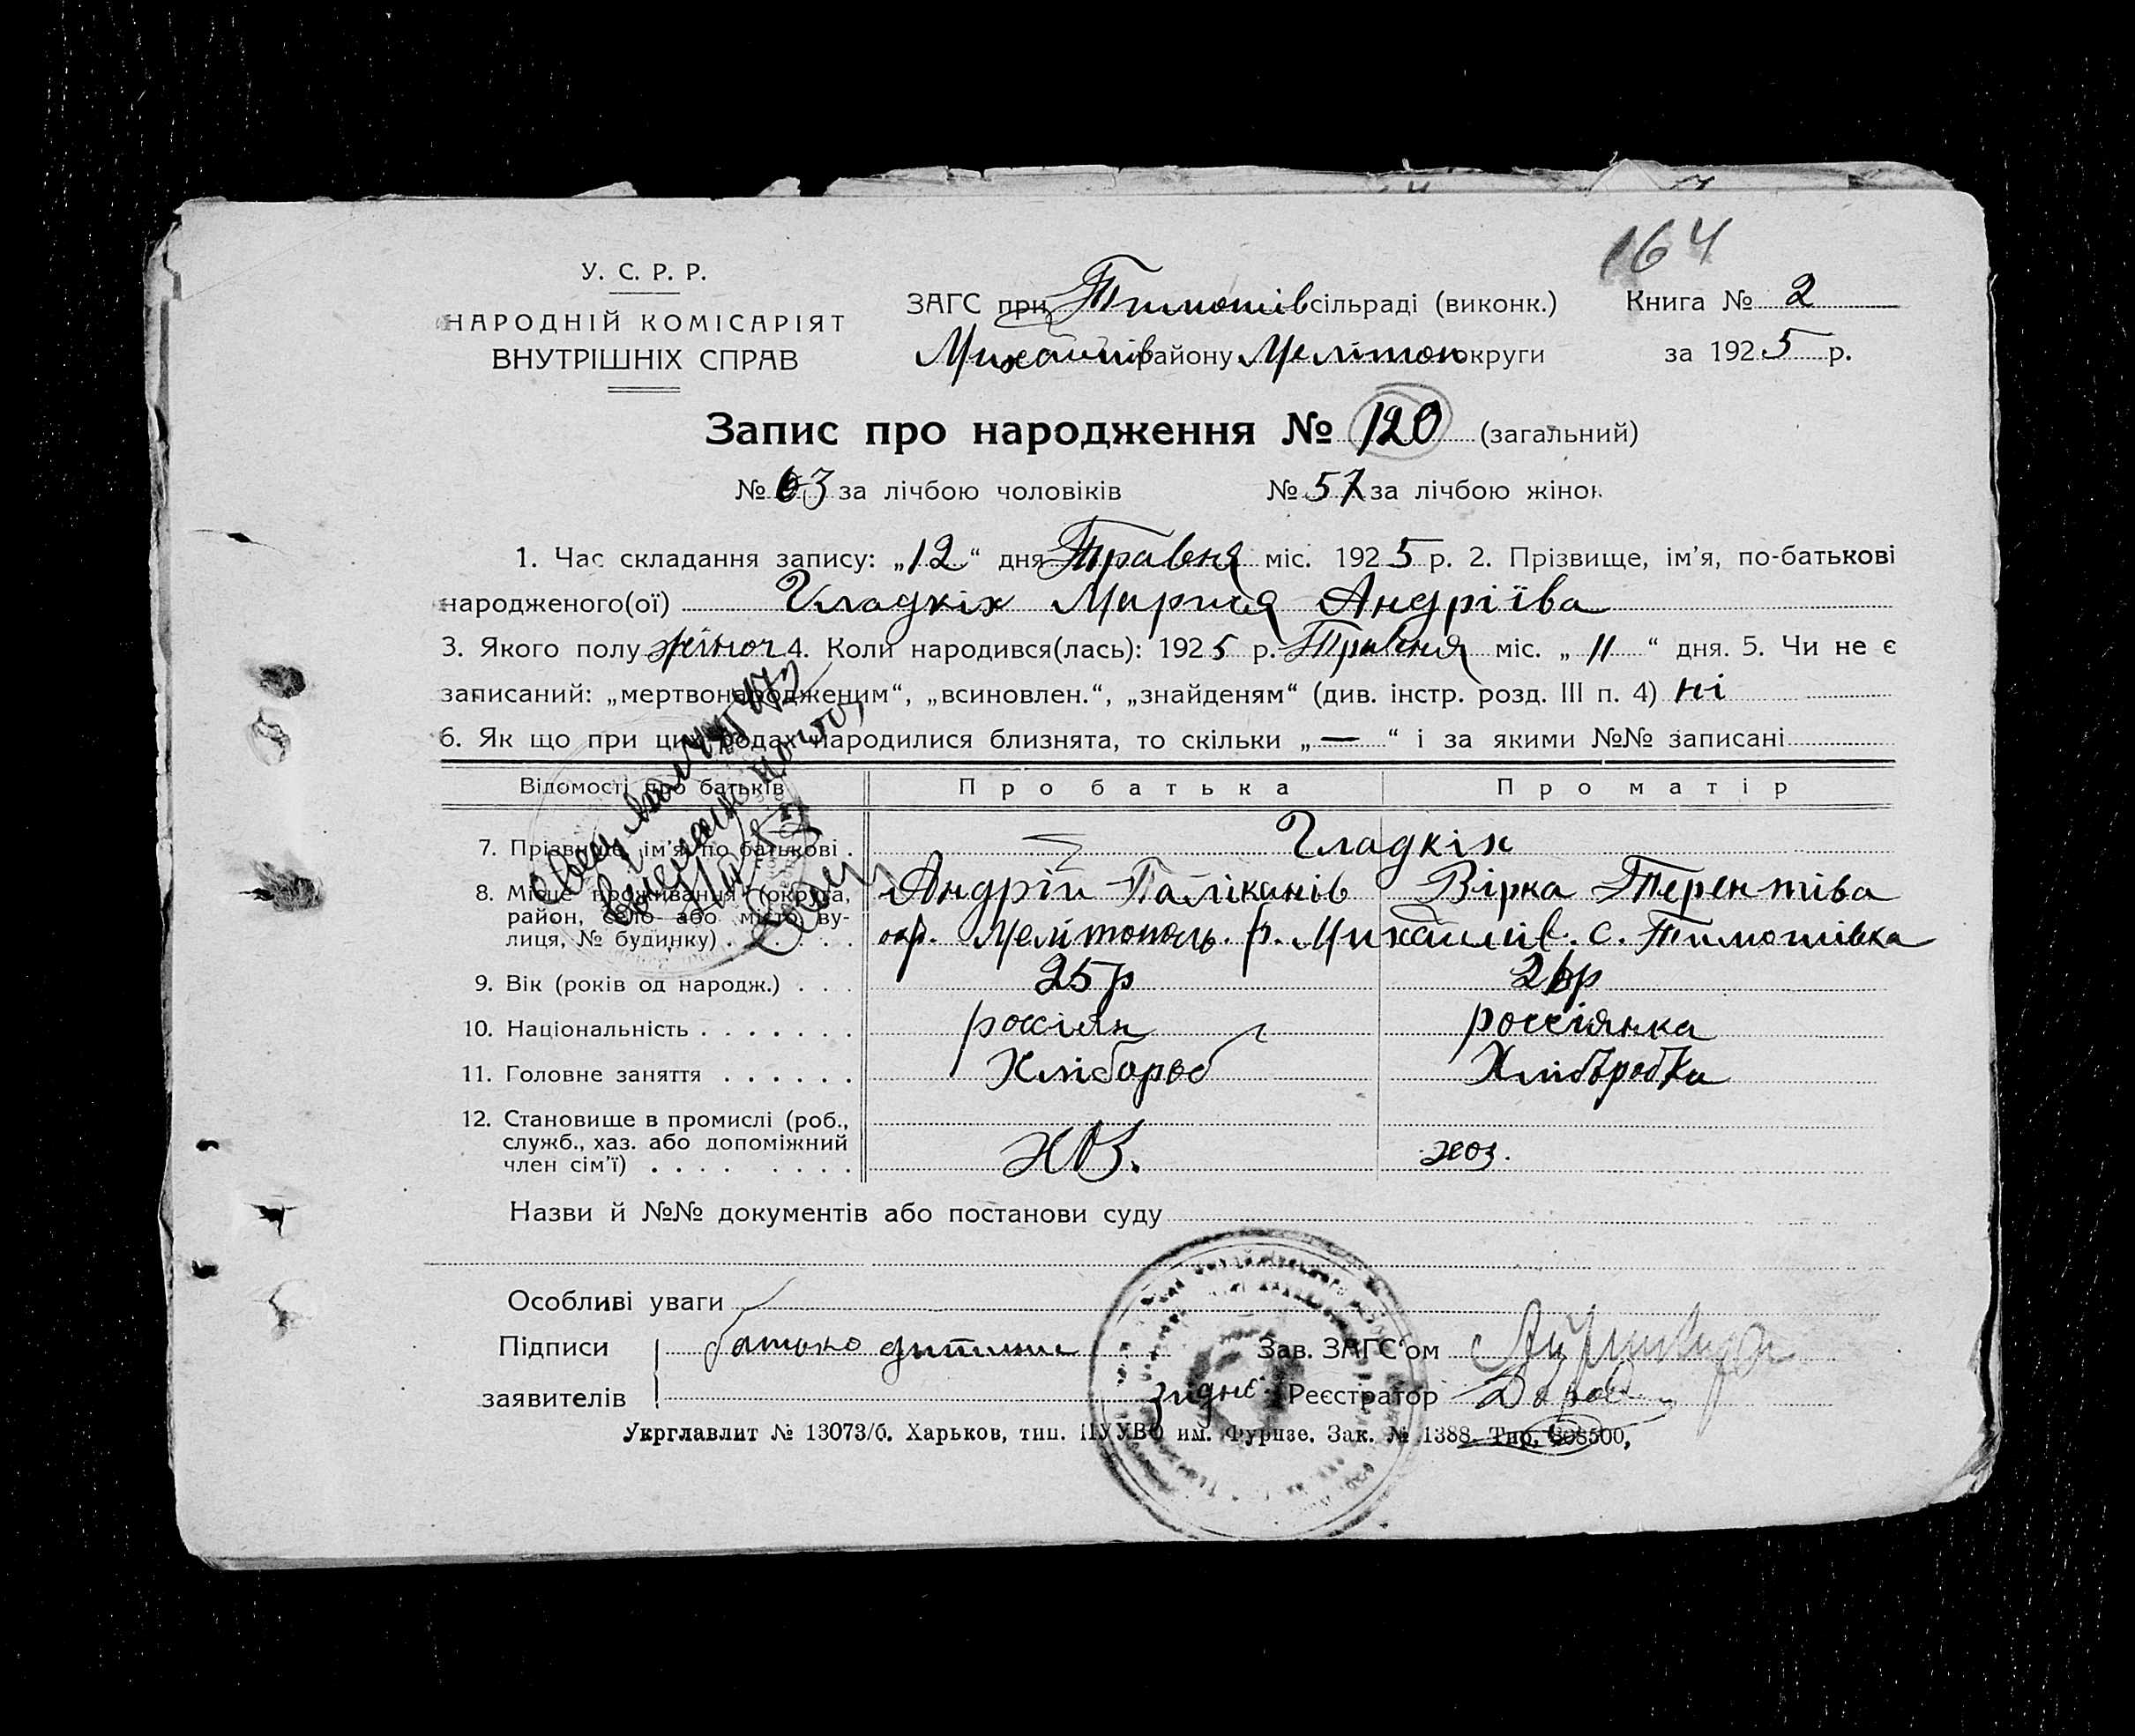 164
У. С. Р. Р.
НАРОДНІЙ КОМІСАРІЯТ
ВНУТРІШНІХ СПРАВ
ЗАГС при Тимошів сільраді (виконк.)
Михайлів району Мелітоп округи
Книга № 2
за 1925 р.
Запис про народження № 120 (загальний)
№ 63 за лічбою чоловіків № 57 за лічбою жінок
1. Час складання запису: „12“ дня Травня міс. 1925 р. 2. Прізвище, ім’я, по-батькові
народженого(ої) Гладкіх Мария Андріїва
3. Якого полу жіноч 4. Коли народився(лась): 1925 р. Травня міс. „11“ дня. 5. Чи не є
записаний: „мертвонародженим“, „всиновлен.“, „знайденям“ (див. інстр. розд. III п. 4) ні
6. Як що при цих родах народилися близнята, то скільки „—“ і за якими №№ записані
Відомості про батьків Про батька Про матір
7. Прізвище, ім’я, по батькові . Гладкіх
Андрій Вірка Терентіва
8. Місце проживання (округа,
район, село або місто, ву-
лиця, № будинку) . . . . . окр. Мелітополь. р. Михайлів. с. Тимошівка
9. Вік (років од народж.) . . . 25 р
10. Національність . . . . . . . россіян россіянка
11. Головне заняття . . . . . . Хлібороб Хліборобка
12. Становище в промислі (роб.,
служб., хаз. або допоміжний
член сім’ї) . . . . . . . . . хоз. хоз.
Назви й №№ документів або постанови суду
Особливі уваги
Підписи батько дитини Зав. ЗАГС‘ом
заявителів згідне Реєстратор
Укрглавлит № 13073/б. Харьков, тип. ПУУВО им. Фурнзе. Зак. № 1388. Тир. 808500,